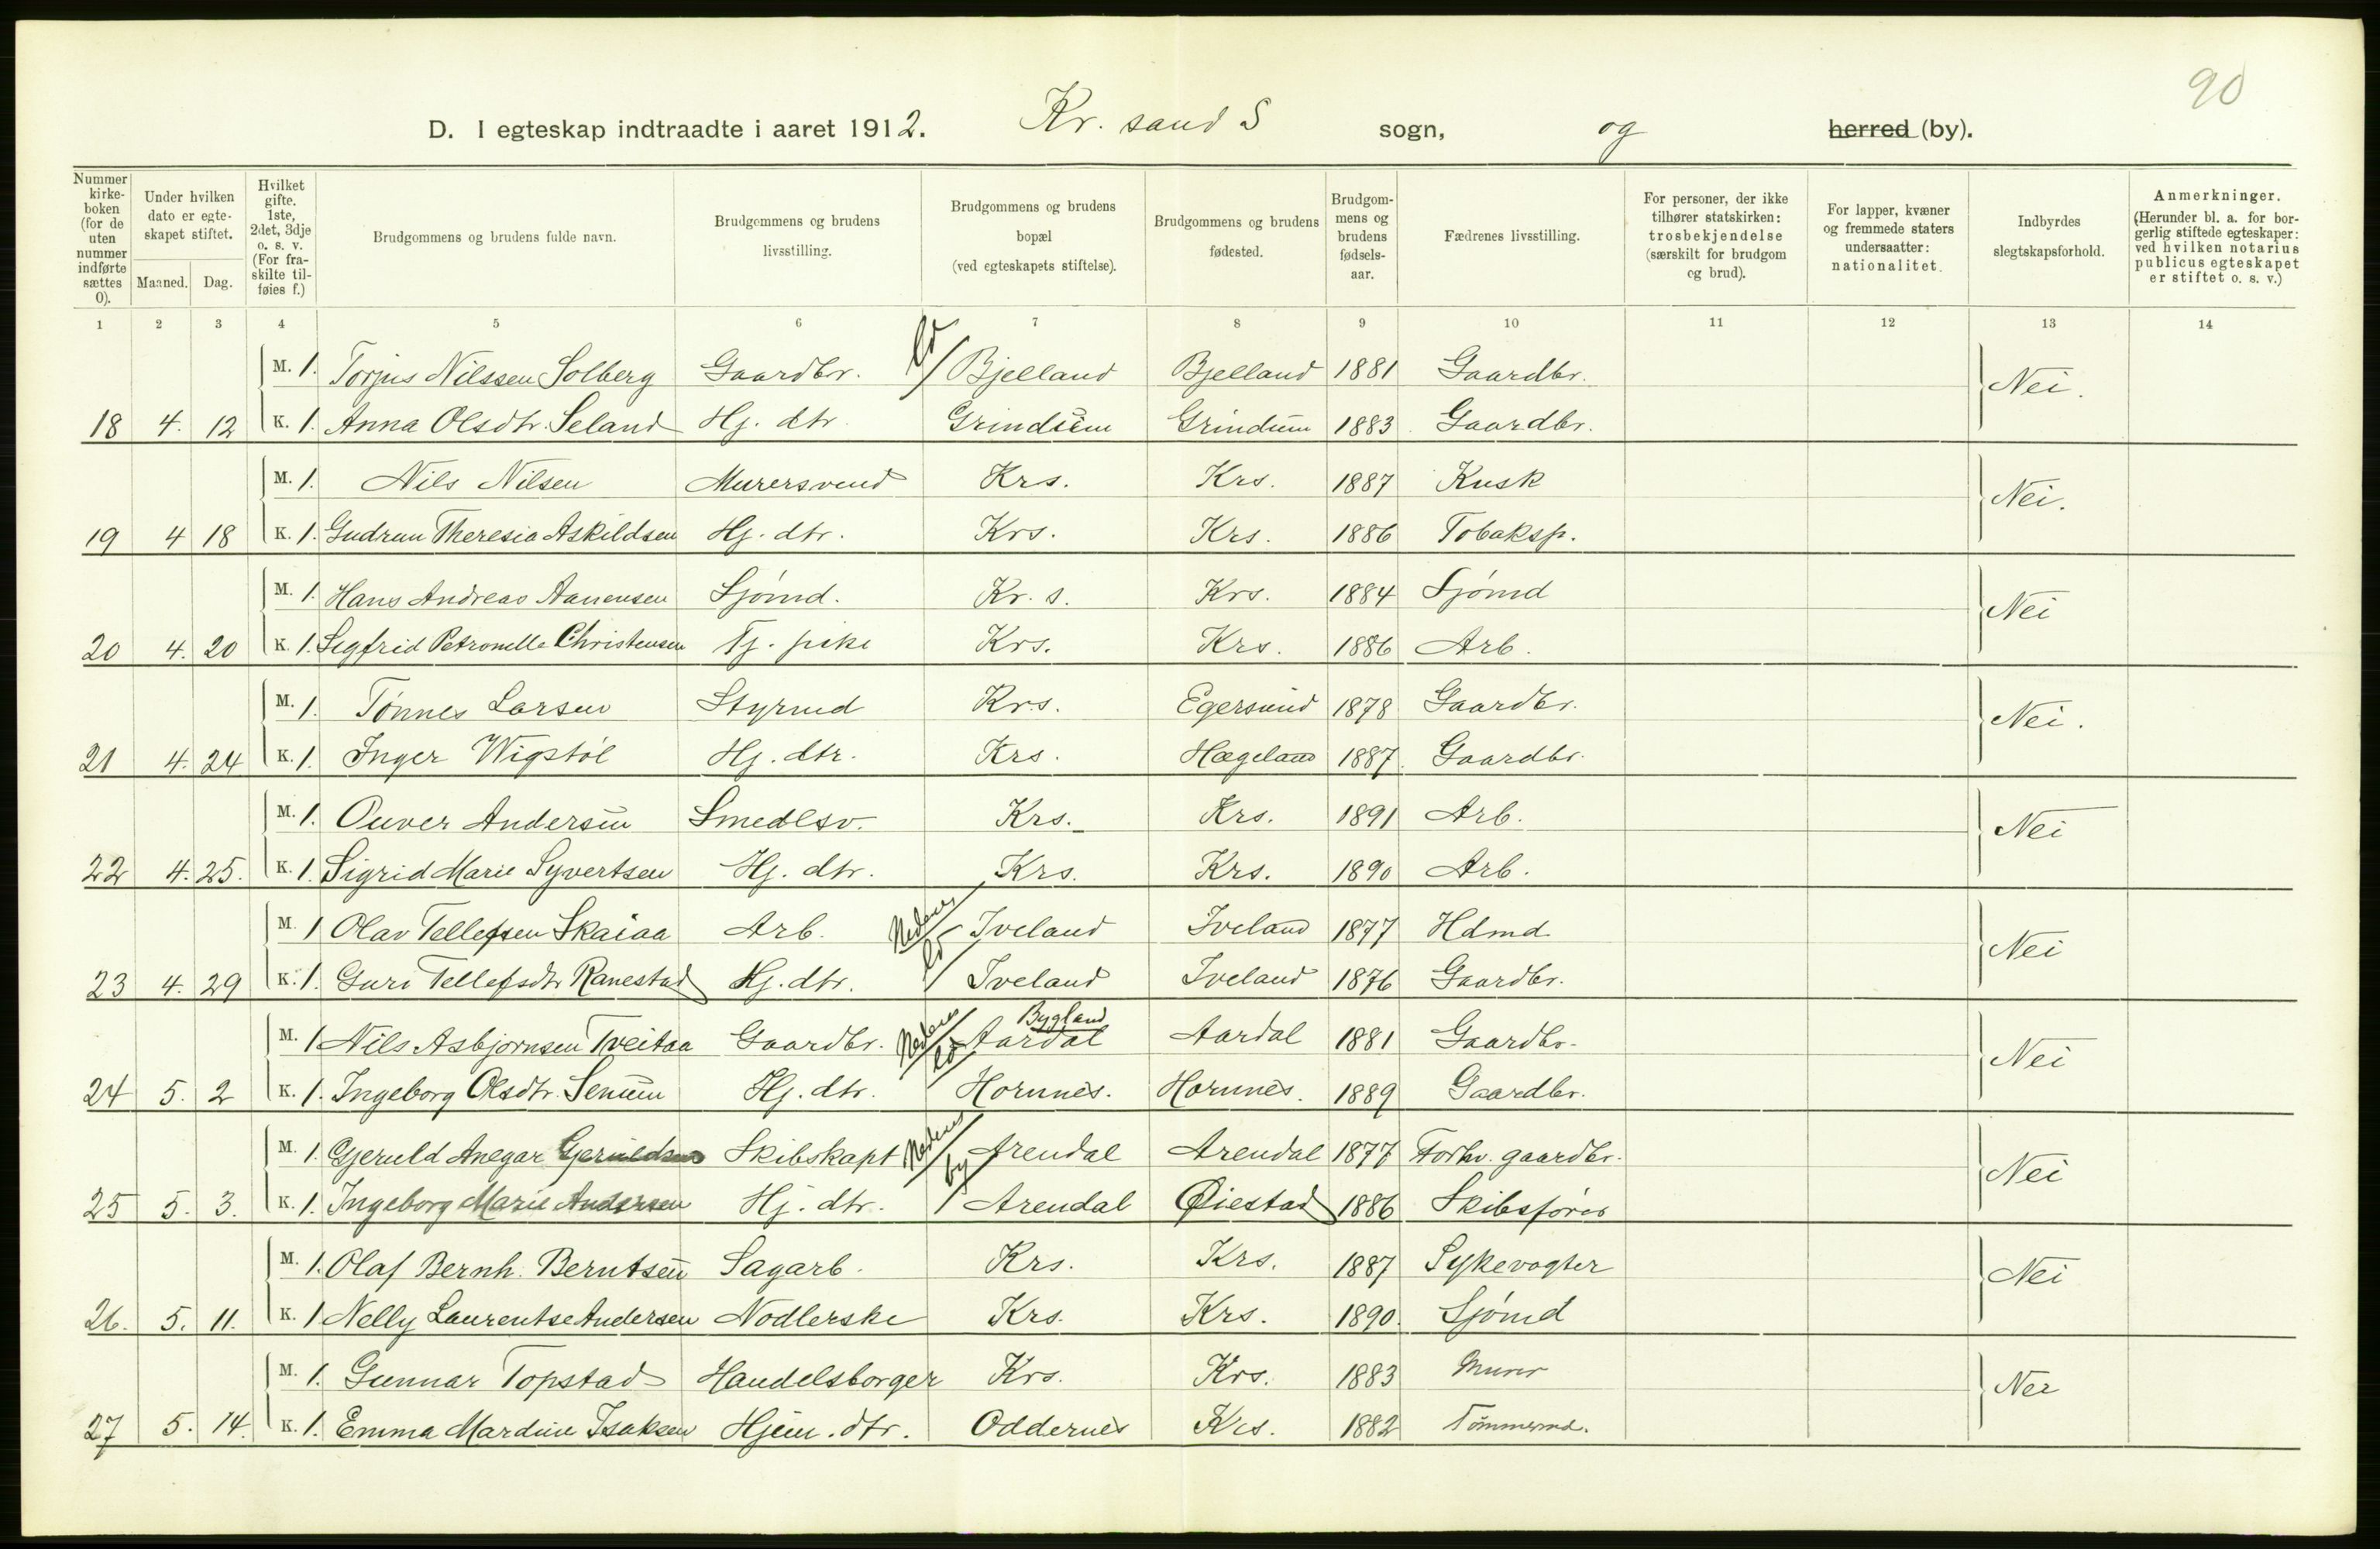 90
D. I egteskap indtraadte i aaret 1912. Kr. sand S sogn, og herred (by).
Nummer kirke-boken (for de uten nummer indførte sættes 0). | Under hvilken dato er egte-skapet stiftet. Maaned. Dag. | Hvilket gifte. 1ste, 2det, 3dje o. s. v. (For fra-skilte til-føies f.) | Brudgommens og brudens fulde navn. | Brudgommens og brudens livsstilling. | Brudgommens og brudens bopæl (ved egteskapets stiftelse). | Brudgommens og brudens fødested. | Brudgom-mens og brudens fødsels-aar. | Fædrenes livsstilling. | For personer, der ikke tilhører statskirken: trosbekjendelse (særskilt for brudgom og brud). | For lapper, kvæner og fremmede staters undersaatter: nationalitet. | Indbyrdes slegtskapsforhold. | Anmerkninger. (Herunder bl. a. for bor-gerlig stiftede egteskaper: ved hvilken notarius publicus egteskapet er stiftet o. s. v.)
1 2 3 4 5 6 7 8 9 10 11 12 13 14
M. 1. Torjus Nilssen Solberg Gaardbr. Bjelland Bjelland 1881 Gaardbr. Nei.
18 4. 12 K. 1. Anna Olsdtr. Seland Hj. dtr. Grindum Grindum 1883 Gaardbr.
M. 1. Nils Nilsen Murersvend Krs. Krs. 1887 Kusk Nei.
19 4 18 K. 1. Gudrun Theresia Askildsen Hj. dtr. Krs. Krs. 1886 Tobaksp.
M. 1. Hans Andreas Aanensen Sjømd. Kr. s. Krs. 1884 Sjømd Nei
20 4. 20 K. 1. Sigfrid Petronelle Christensen Tj. pike Krs. Krs. 1886 Arb.
M. 1. Tønnes Larsen Styrmd Krs. Egersund 1878 Gaardbr. Nei.
21 4. 24 K. 1. Inger Wigstøl Hj. dtr. Krs. Hægeland 1887. Gaardbr.
M. 1. Ouver Andersen Smedesv. Krs. Krs. 1891 Arb. Nei
22 4. 25. K. 1. Sigrid Marie Syvertsen Hj. dtr. Krs. Krs. 1890 Arb.
M. 1 Olav Tellefsen Skaiaa Arb. Nedenes ld Iveland Iveland 1877 Hdmd Nei
23 4. 29 K. 1. Guri Tellefsdtr Ranestad Hj. dtr. Iveland Iveland 1876 Gaardbr.
Bygland
M. 1 Nils Asbjørnsen Tveitaa Gaardbr. Nedenes ld Aardal Aardal 1881 Gaardbr. Nei
24 5. 2 K. 1. Ingeborg Olsdtr. Senum Hj. dtr. Hornnes. Hornnes. 1889 Gaardbr.
M. 1. Gjeruld Ansgar Gjeruldsen Skibskapt Nedenes by Arendal Arendal 1877 Forhv. gaardbr. Nei
25 5. 3. K. 1. Ingeborg Marie Andersen Hj. dtr. Arendal Øiestad 1886 Skibsfører
M. 1. Olaf Bernh. Berntsen Sagarb. Krs. Krs. 1887 Sykevogter Nei
26. 5. 11. K. 1 Nelly Laurentse Andersen Nodlerske Krs. Krs. 1890. Sjømd
M. 1. Gunnar Topstad Handelsborger Krs. Krs. 1883 Murer Nei
27 5. 14. K. 1. Emma Mardine Isaksen Hjem. dtr. Oddernes Krs. 1882 Tømmermd.